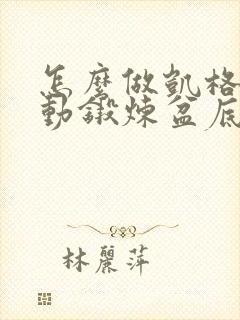 怎麼做凱格
動鍛煉盆底
林麗萍